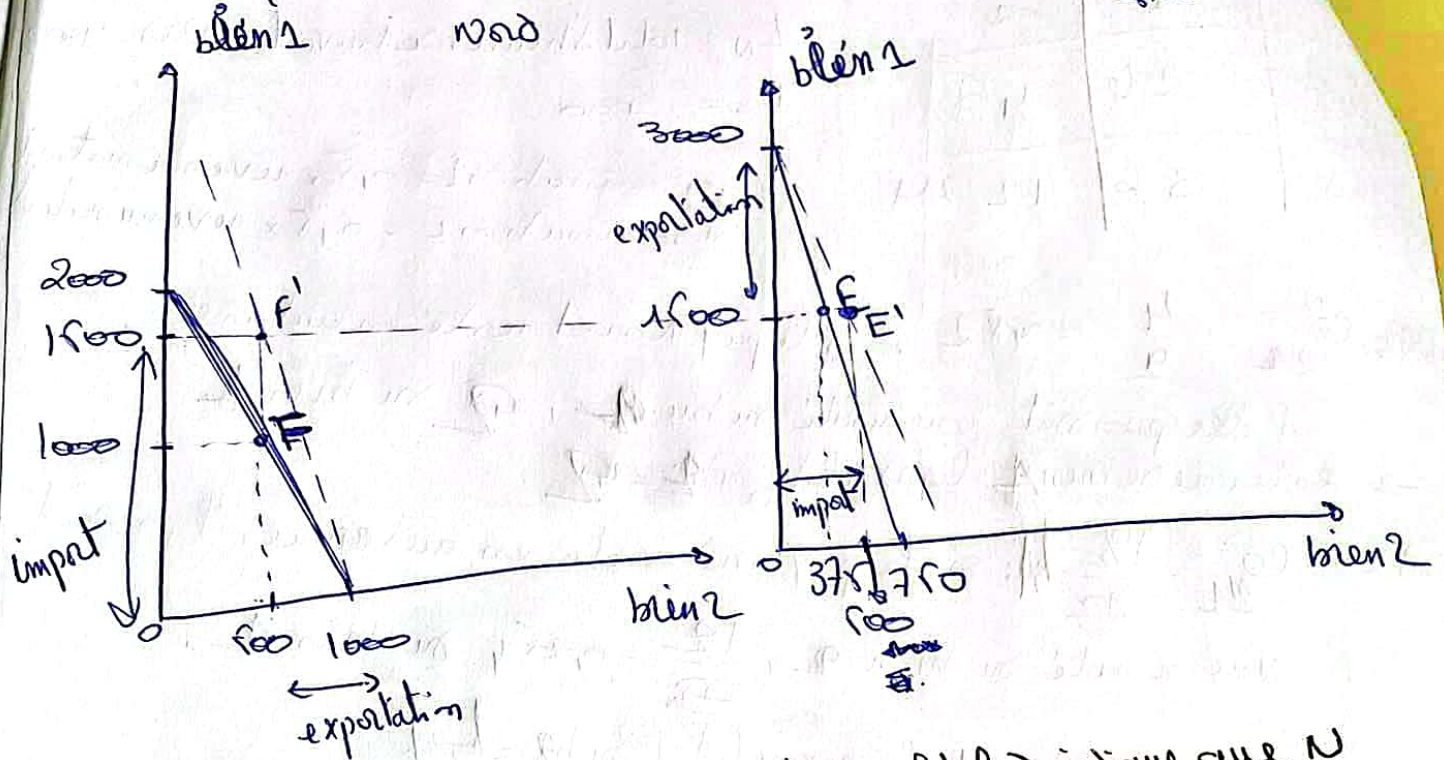 bien 1
Nord
2000
1500
1000
import
F'
F
0
500
1000
bien 2
exportation
bien 1
3000
exportation
1500
E
E'
import
0
375
750
500
bien 2
que N